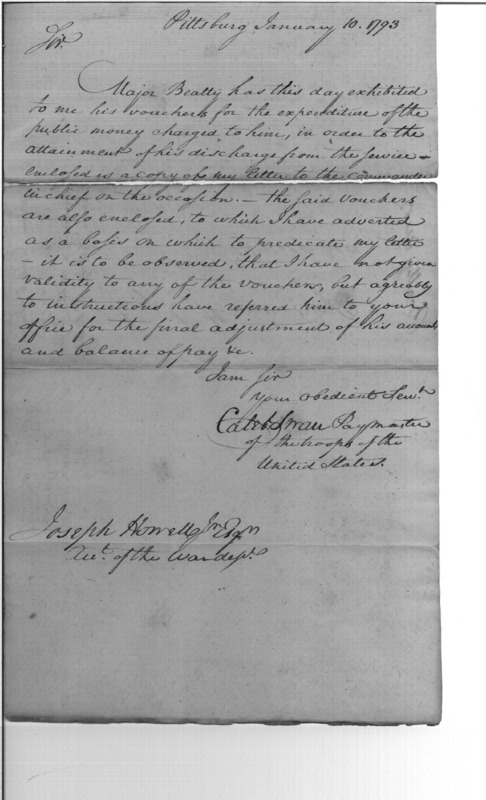 Pittsburg January 10. 1793
Sir.
Major Beatty has this day exhibited
to me his vouchers for the expenditure of the
public money charged to him, in order to the
attainment of his discharge from the service –
enclosed is a copy of my letter to the commander
in chief on the occasion. – the said vouchers
are also enclosed, to which I have adverted
as a basis on which to predicate my letter
– it is to be observed, that I have not given
validity to any of the vouchers, but agreeably
to instructions have referred him to your
office for the final adjustment of his accounts
and balance of pay &c.
I am Sir
your obedient Servt.
Caleb Swan Paymaster
of the troops of the
United States.
Joseph Howell Jr. Esqr.
Acct. of the War dept.